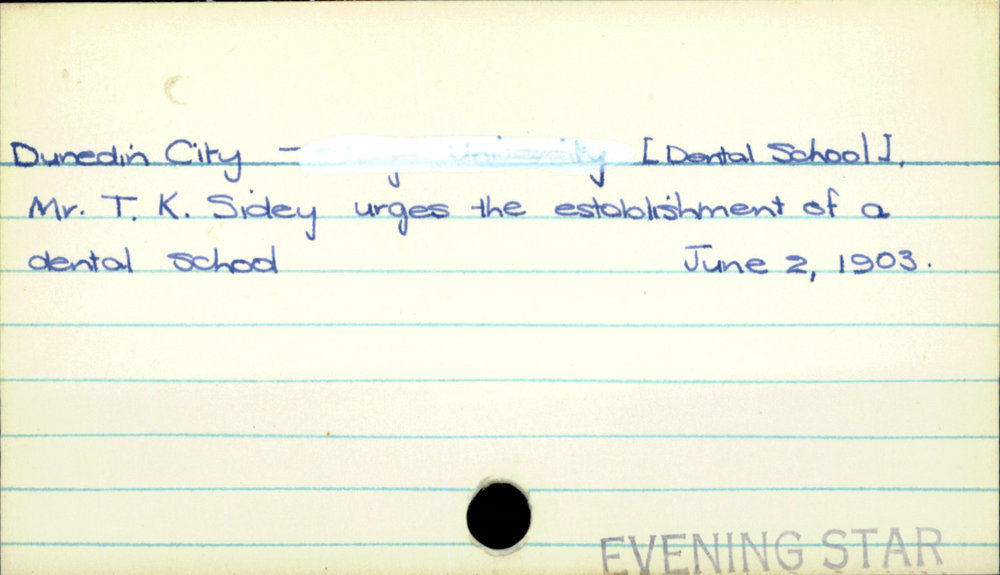 Dunedin City - [Dental School].
Mr. T. K. Sidey urges the establishment of a
dental school June 2, 1903.
EVENING STAR